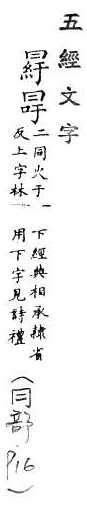 五經文字
冔
二同火于
反上字林
下經典相承隸省
用下字見詩禮
(冃部 P16)